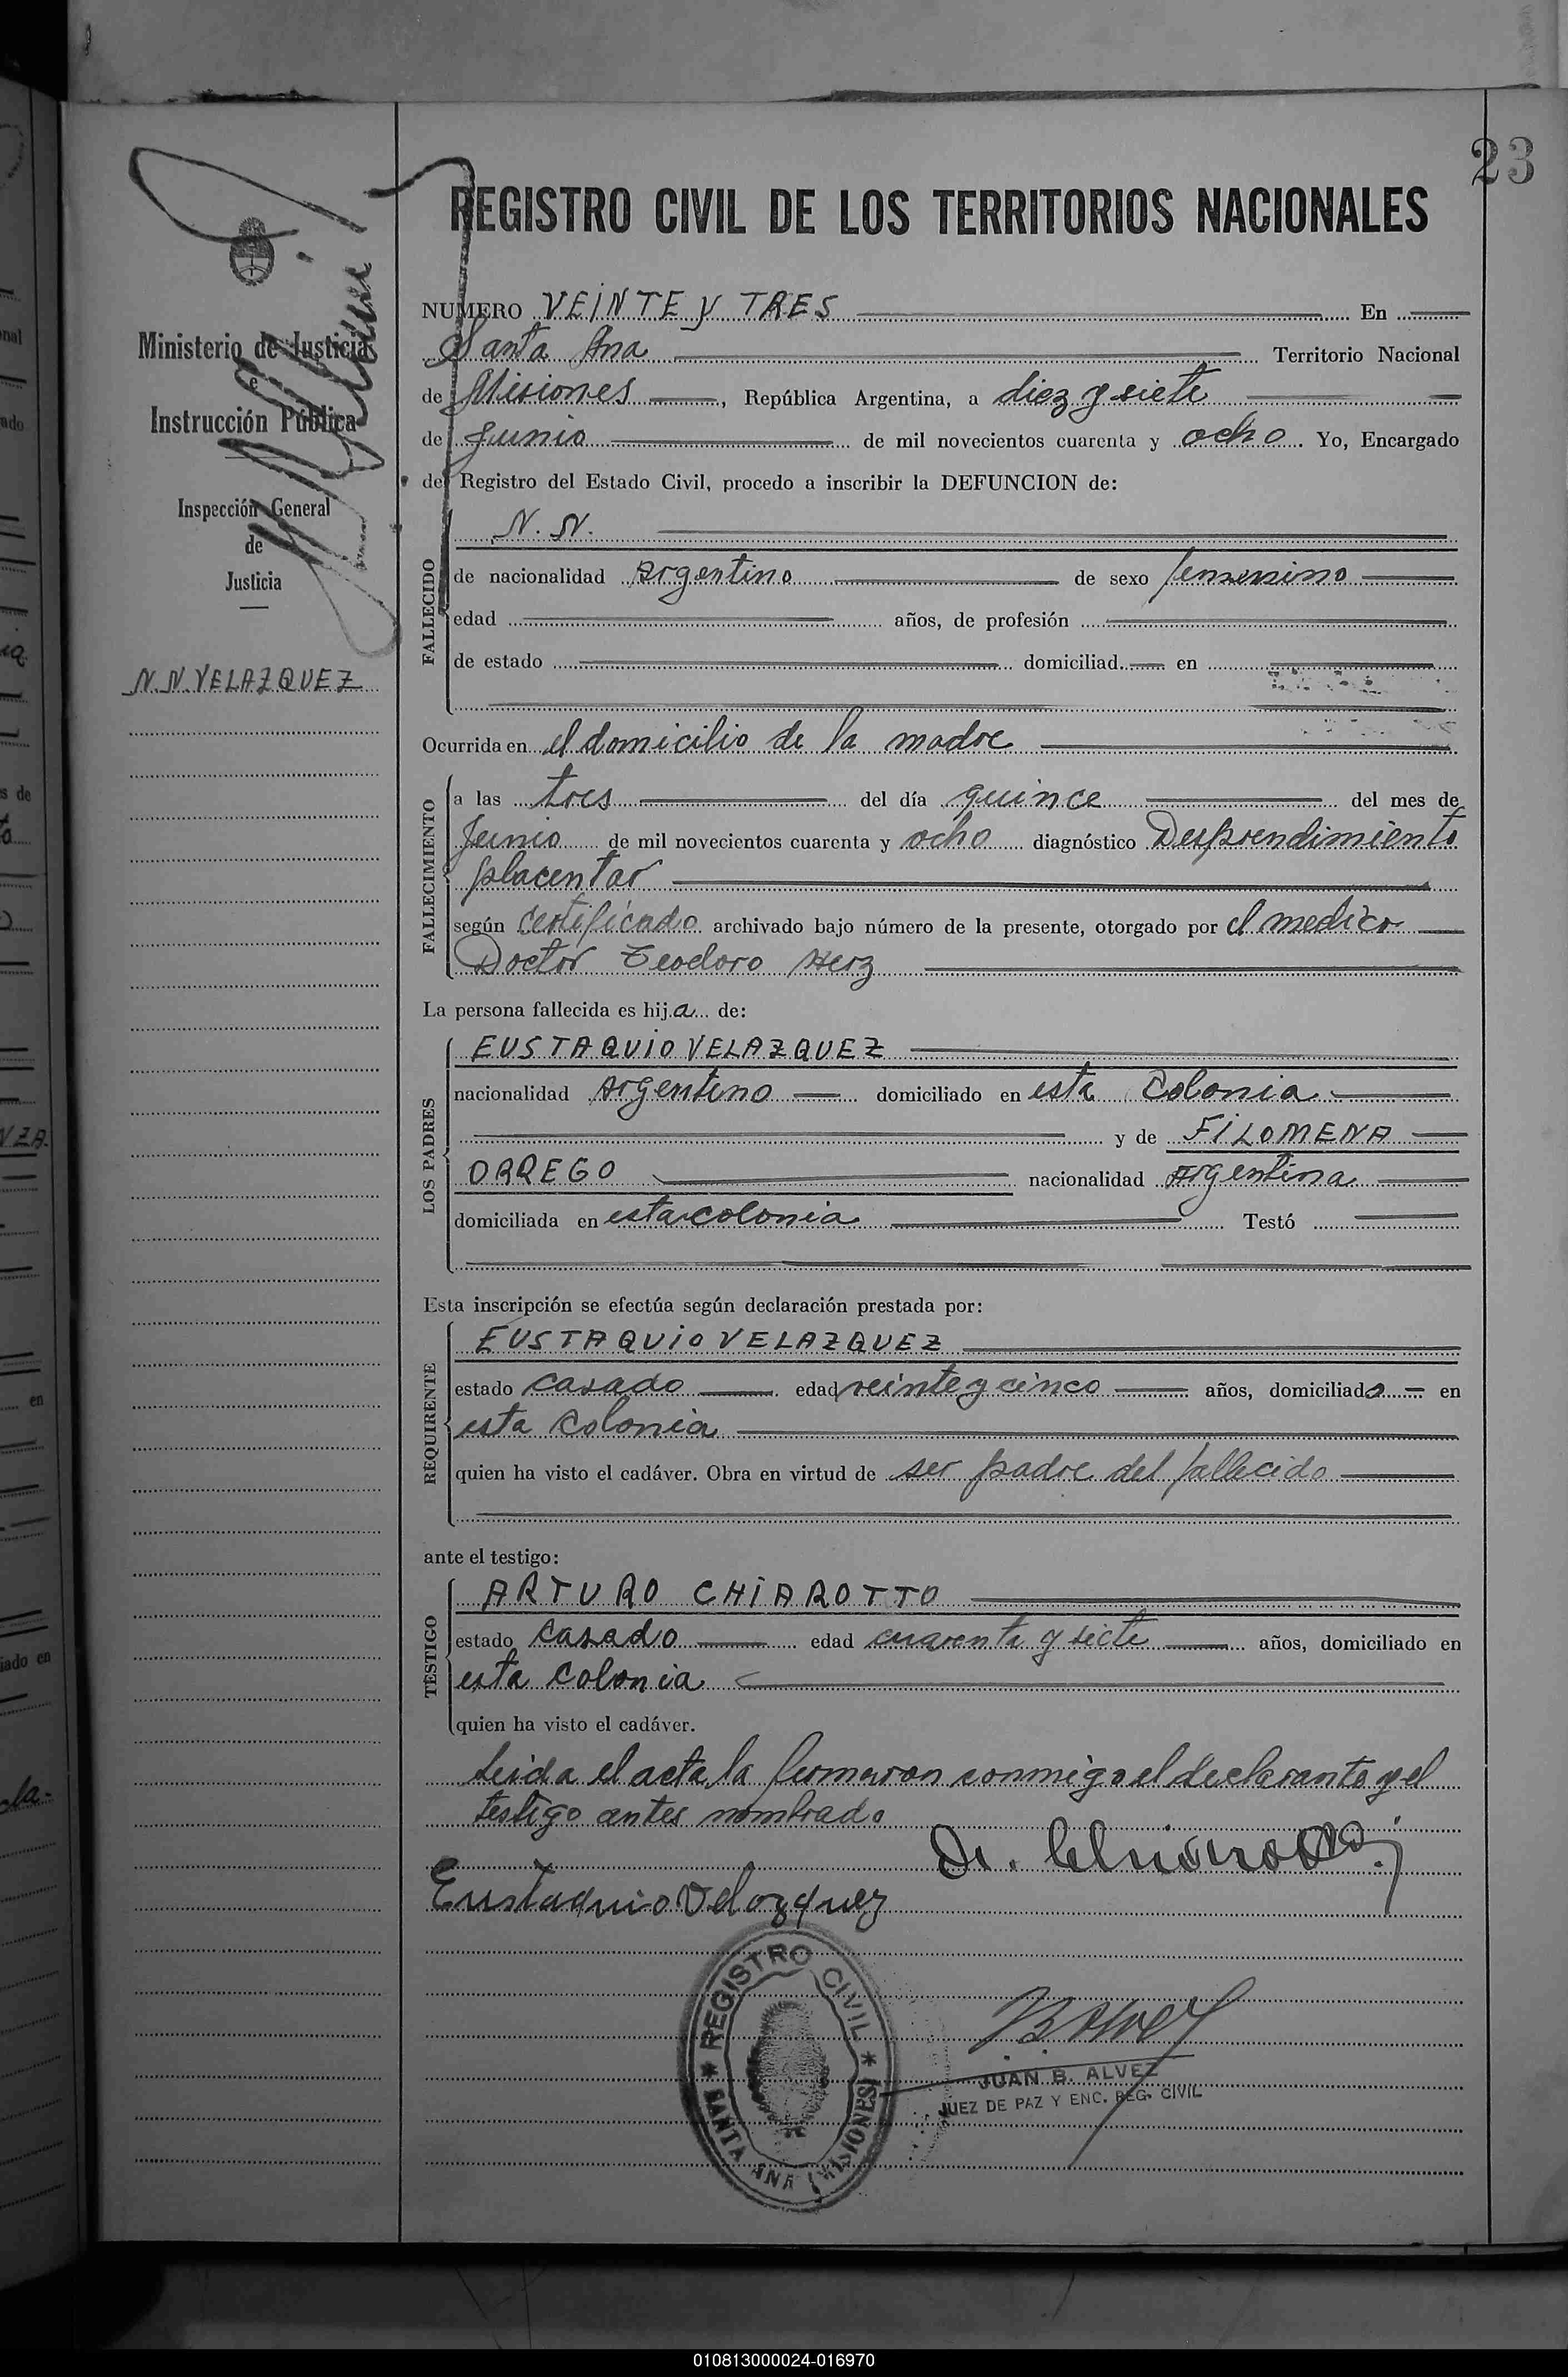 23
REGISTRO CIVIL DE LOS TERRITORIOS NACIONALES
Ministerio de Justicia
e
Instrucción Pública
Inspección General
de
Justicia
N. N. VELAZQUEZ
NUMERO VEINTE y TRES En
Santa Ana Territorio Nacional
de Misiones, República Argentina, a diez y siete
de Junio de mil novecientos cuarenta y ocho. Yo, Encargado
del Registro del Estado Civil, procedo a inscribir la DEFUNCION de:
FALLECIDO
N. N.
de nacionalidad Argentino de sexo femenino
edad años, de profesión
de estado domiciliad en
Ocurrida en el domicilio de la madre
FALLECIMIENTO
a las tres del día quince del mes de
Junio de mil novecientos cuarenta y ocho diagnóstico Desprendimiento
placentar
según Certificado archivado bajo número de la presente, otorgado por el medico
Doctor Teodoro Herz
La persona fallecida es hija de:
LOS PADRES
EUSTAQUIO VELAZQUEZ
nacionalidad Argentino domiciliado en esta Colonia
y de FILOMENA
ORREGO nacionalidad Argentina
domiciliada en esta colonia Testó
Esta inscripción se efectúa según declaración prestada por:
REQUIRENTE
EUSTAQUIO VELAZQUEZ
estado casado edad veinte y cinco años, domiciliado en
esta Colonia
quien ha visto el cadáver. Obra en virtud de ser padre del fallecido
ante el testigo:
TESTIGO
ARTURO CHIAROTTO
estado casado edad cuarenta y siete años, domiciliado en
esta Colonia
quien ha visto el cadáver.
Leida el acta la firmaron conmigo el declarante y el
testigo antes nombrado
Eustaquio Velazquez
REGISTRO CIVIL
SANTA ANA (MISIONES)
JUAN B. ALVEZ
JUEZ DE PAZ Y ENC. REG. CIVIL
010813000024-016970